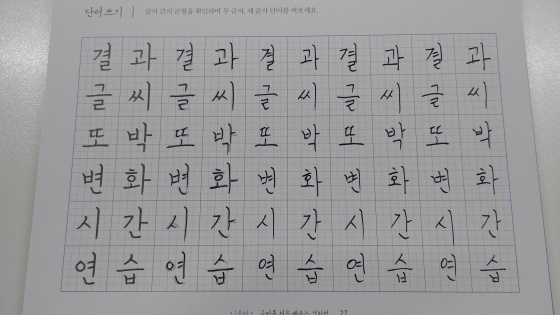 단어 쓰기 | 글자 간의 균형을 확인하며 두 글자, 세 글자 단어를 써보세요.
결 과 결 과 결 과 결 과 결 과
글 씨 글 씨 글 씨 글 씨 글 씨
또 박 또 박 또 박 또 박 또 박
변 화 변 화 변 화 변 화 변 화
시 간 시 간 시 간 시 간 시 간
연 습 연 습 연 습 연 습 연 습
27